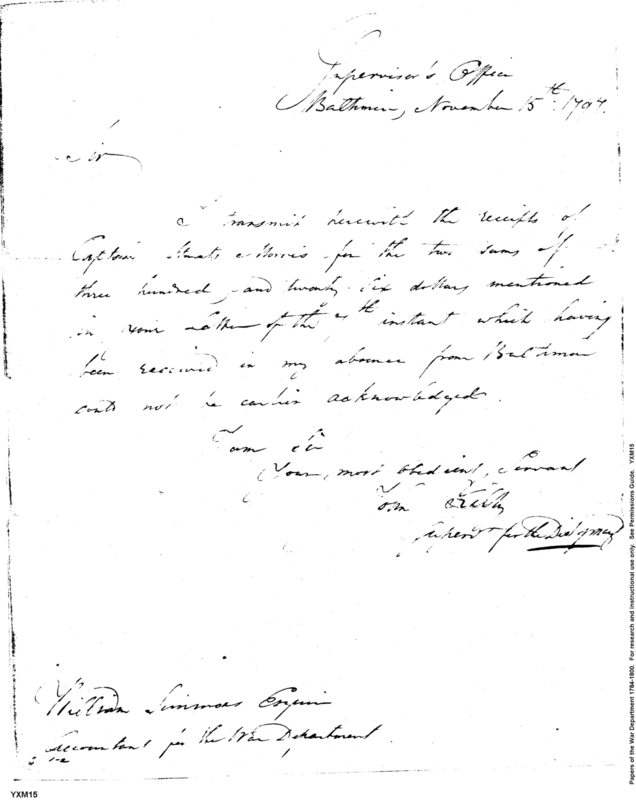 Supervisor's Office
Baltimore, November 15th. 1797.
Sir
I transmit herewith the receipts of
Captain Staats Morris for the two sums of
three hundred, and twenty six dollars mentioned
in your letter of the 4th instant which having
been received in my absence from Baltimore
could not be earlier acknowledged.
I am Sir
Your, most obedient, Servant
John
Superv for the Dist of Mary
William Simmons Esquire
Accountant for the War Department
YXM15
Papers of the War Department 1784-1800. For research and instructional use only. See Permissions Guide. YXM15